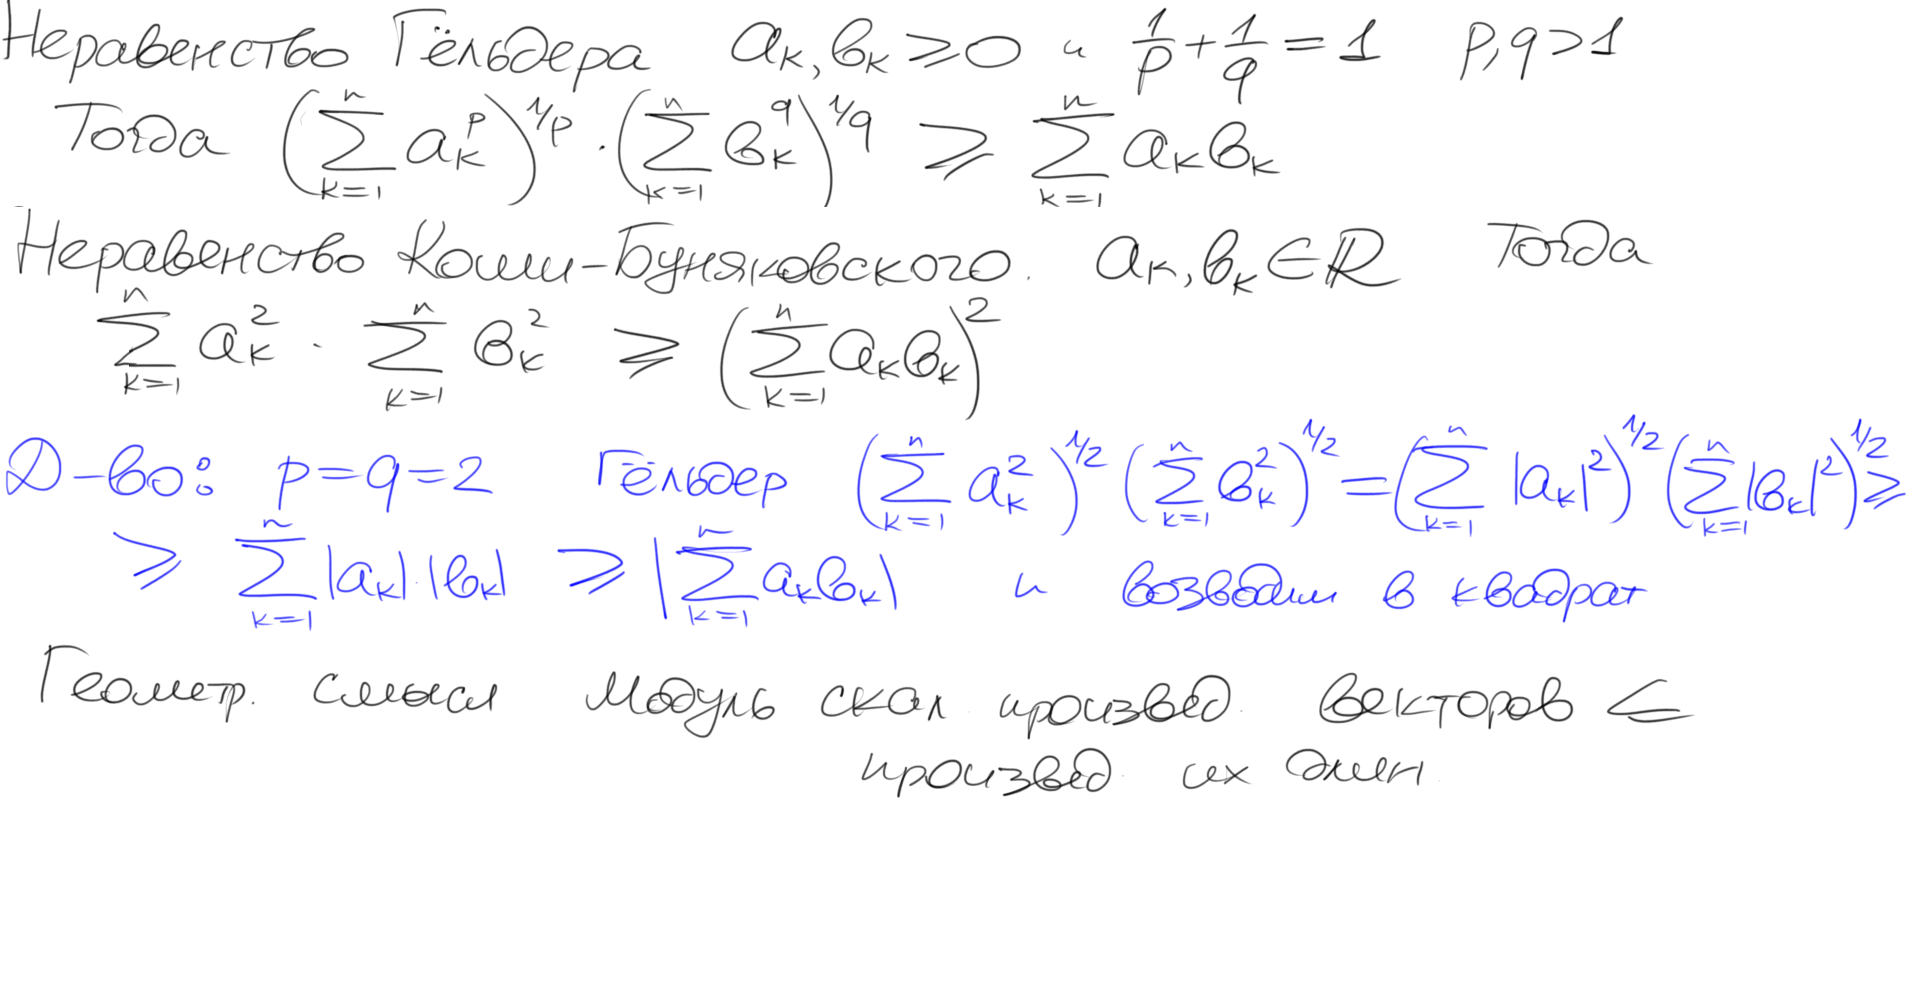 Неравенство Гёльдера aₖ, bₖ ⩾ 0 и 1/p + 1/q = 1 p, q > 1
Тогда (∑ₖ₌₁ⁿ aₖᵖ)^{1/p} · (∑ₖ₌₁ⁿ bₖ^q)^{1/q} ⩾ ∑ₖ₌₁ⁿ aₖbₖ
Неравенство Коши-Буняковского. aₖ, bₖ ∈ ℝ Тогда
∑ₖ₌₁ⁿ aₖ² · ∑ₖ₌₁ⁿ bₖ² ⩾ (∑ₖ₌₁ⁿ aₖbₖ)²
Д-во: p = q = 2 Гёльдер (∑ₖ₌₁ⁿ aₖ²)^{1/2} (∑ₖ₌₁ⁿ bₖ²)^{1/2} = (∑ₖ₌₁ⁿ |aₖ|²)^{1/2} (∑ₖ₌₁ⁿ |bₖ|²)^{1/2} ⩾
⩾ ∑ₖ₌₁ⁿ |aₖ|·|bₖ| ⩾ |∑ₖ₌₁ⁿ aₖbₖ| и возводим в квадрат
Геометр. смысл Модуль скал. произвед. векторов ⩽
произвед. их длин